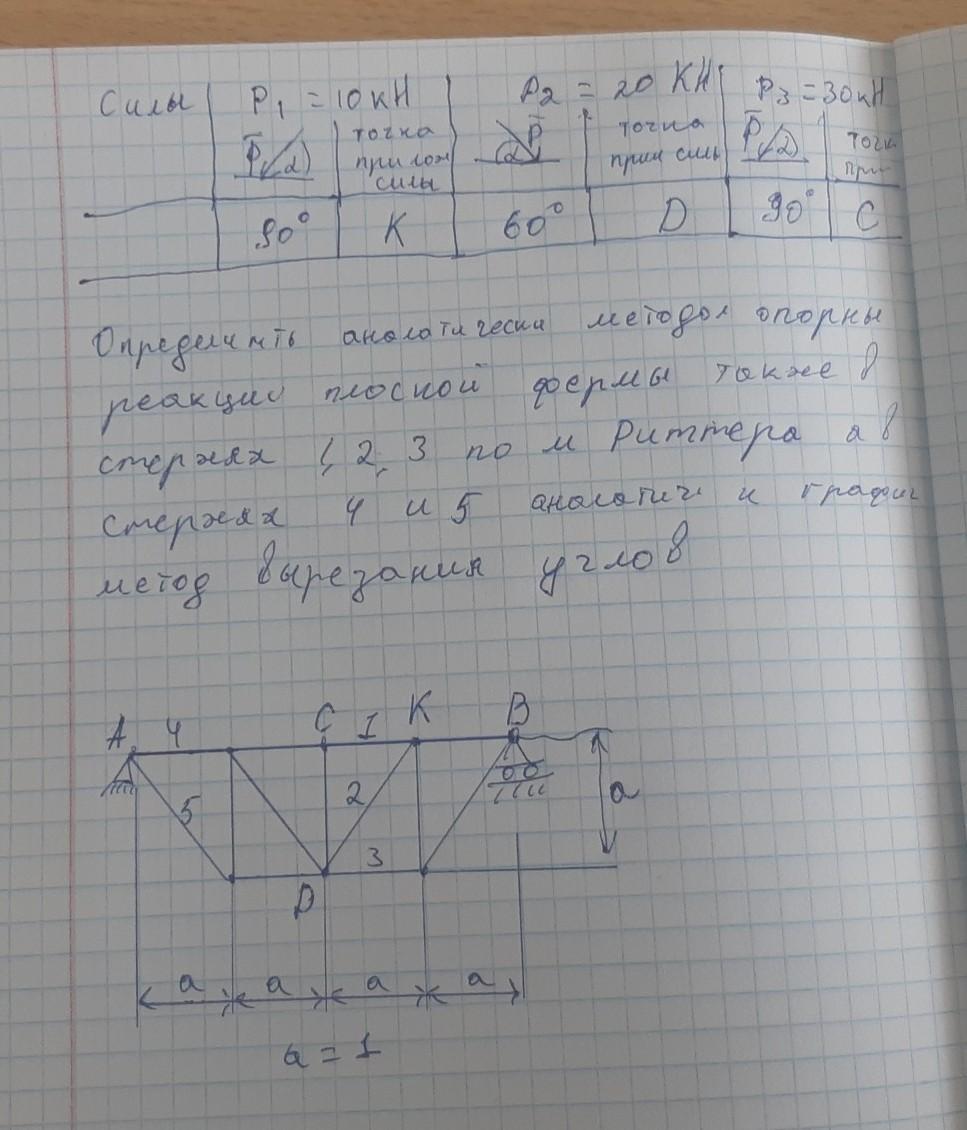 Силы P1 = 10 кН P2 = 20 КН P3 = 30 кН
P̅ α точка P̅ точка P̅ α точк
прилож α прим силы при
силы
90° K 60° D 90° C
Определить аналотически методом опорны
реакции плоской фермы также в
стержях 1, 2, 3 по м Риттера а в
стержях 4 и 5 аналотич и графич
метод вырезания углов
A 4 C 1 K B
5 2 a
3
D
a a a a
a = 1